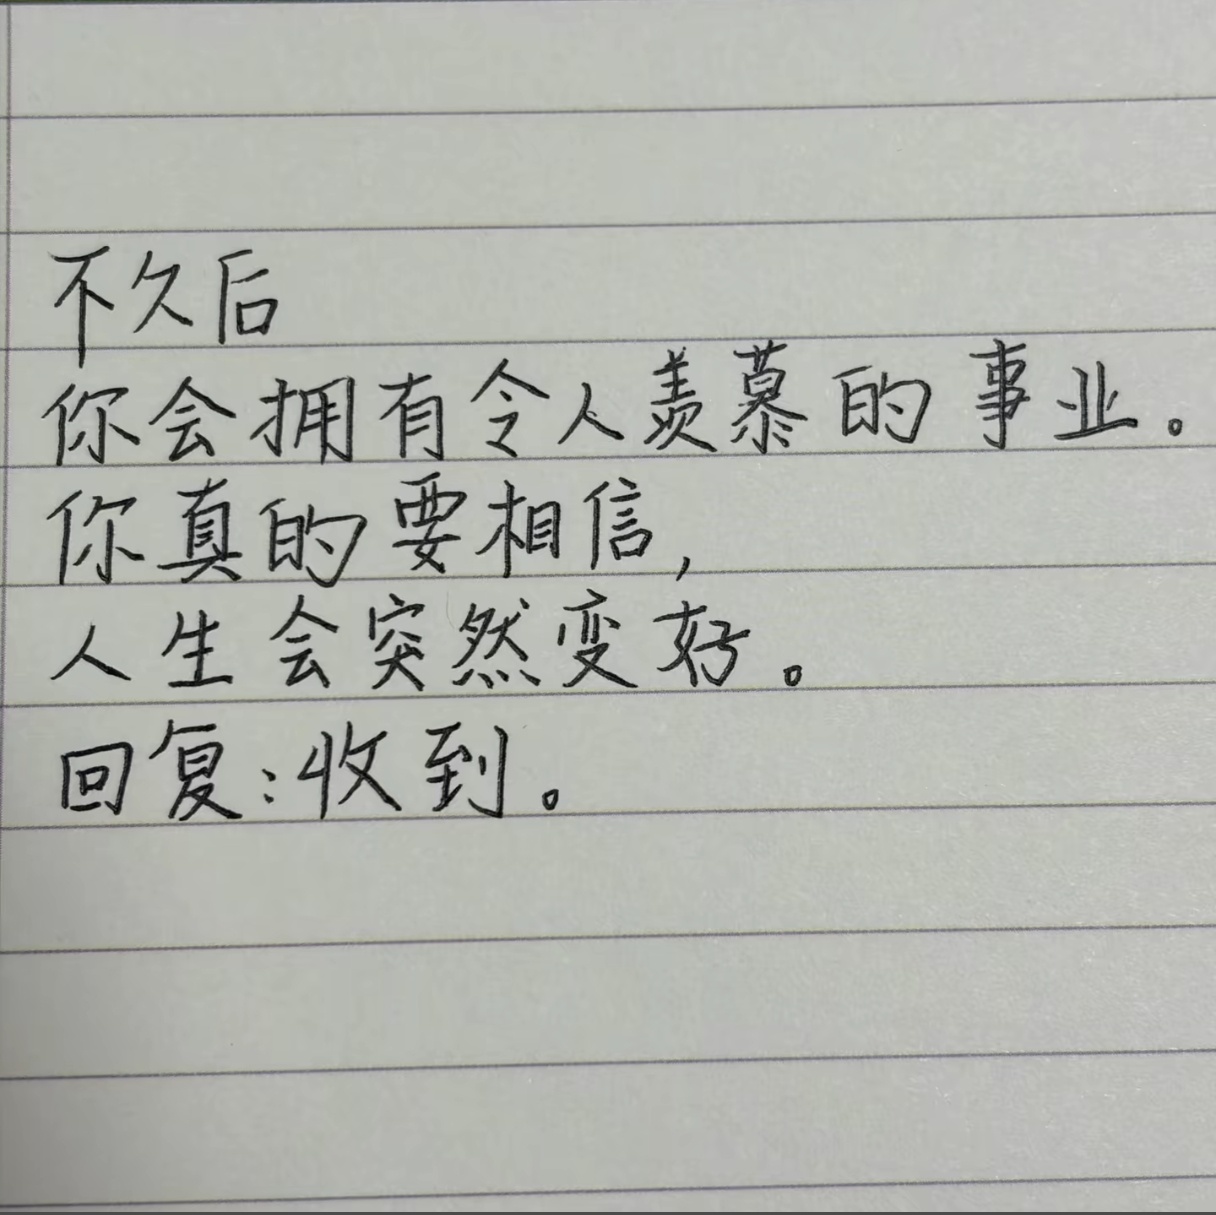 不久后
你会拥有令人羡慕的事业。
你真的要相信,
人生会突然变好。
回复:收到。